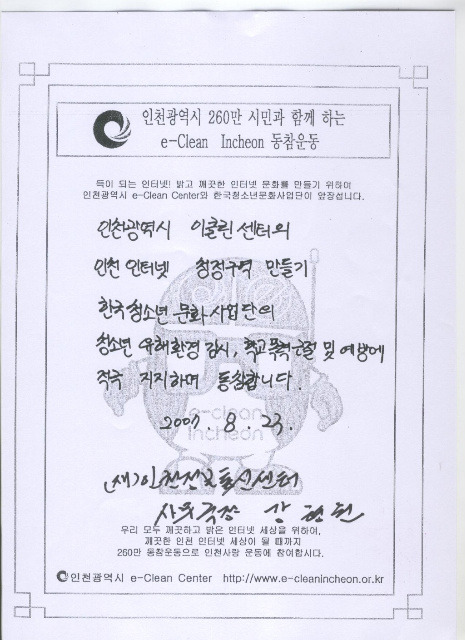 인천광역시 260만 시민과 함께 하는
e-Clean Incheon 동참운동
득이 되는 인터넷! 밝고 깨끗한 인터넷 문화를 만들기 위하여
인천광역시 e-Clean Center와 한국청소년문화사업단이 앞장섭니다.
인천광역시 이클린 센터의
인천 인터넷 청정구역 만들기
한국청소년 문화사업단의
청소년 유해환경 감시, 학교폭력 근절 및 예방에
적극 지지하며 동참합니다.
e-clean
incheon
2007. 8. 23.
(재)인천정보통신센터
사무국장
우리 모두 깨끗하고 밝은 인터넷 세상을 위하여,
깨끗한 인천 인터넷 세상이 될 때까지
260만 동참운동으로 인천사랑 운동에 참여합시다.
인천광역시 e-Clean Center http://www.e-cleanincheon.or.kr